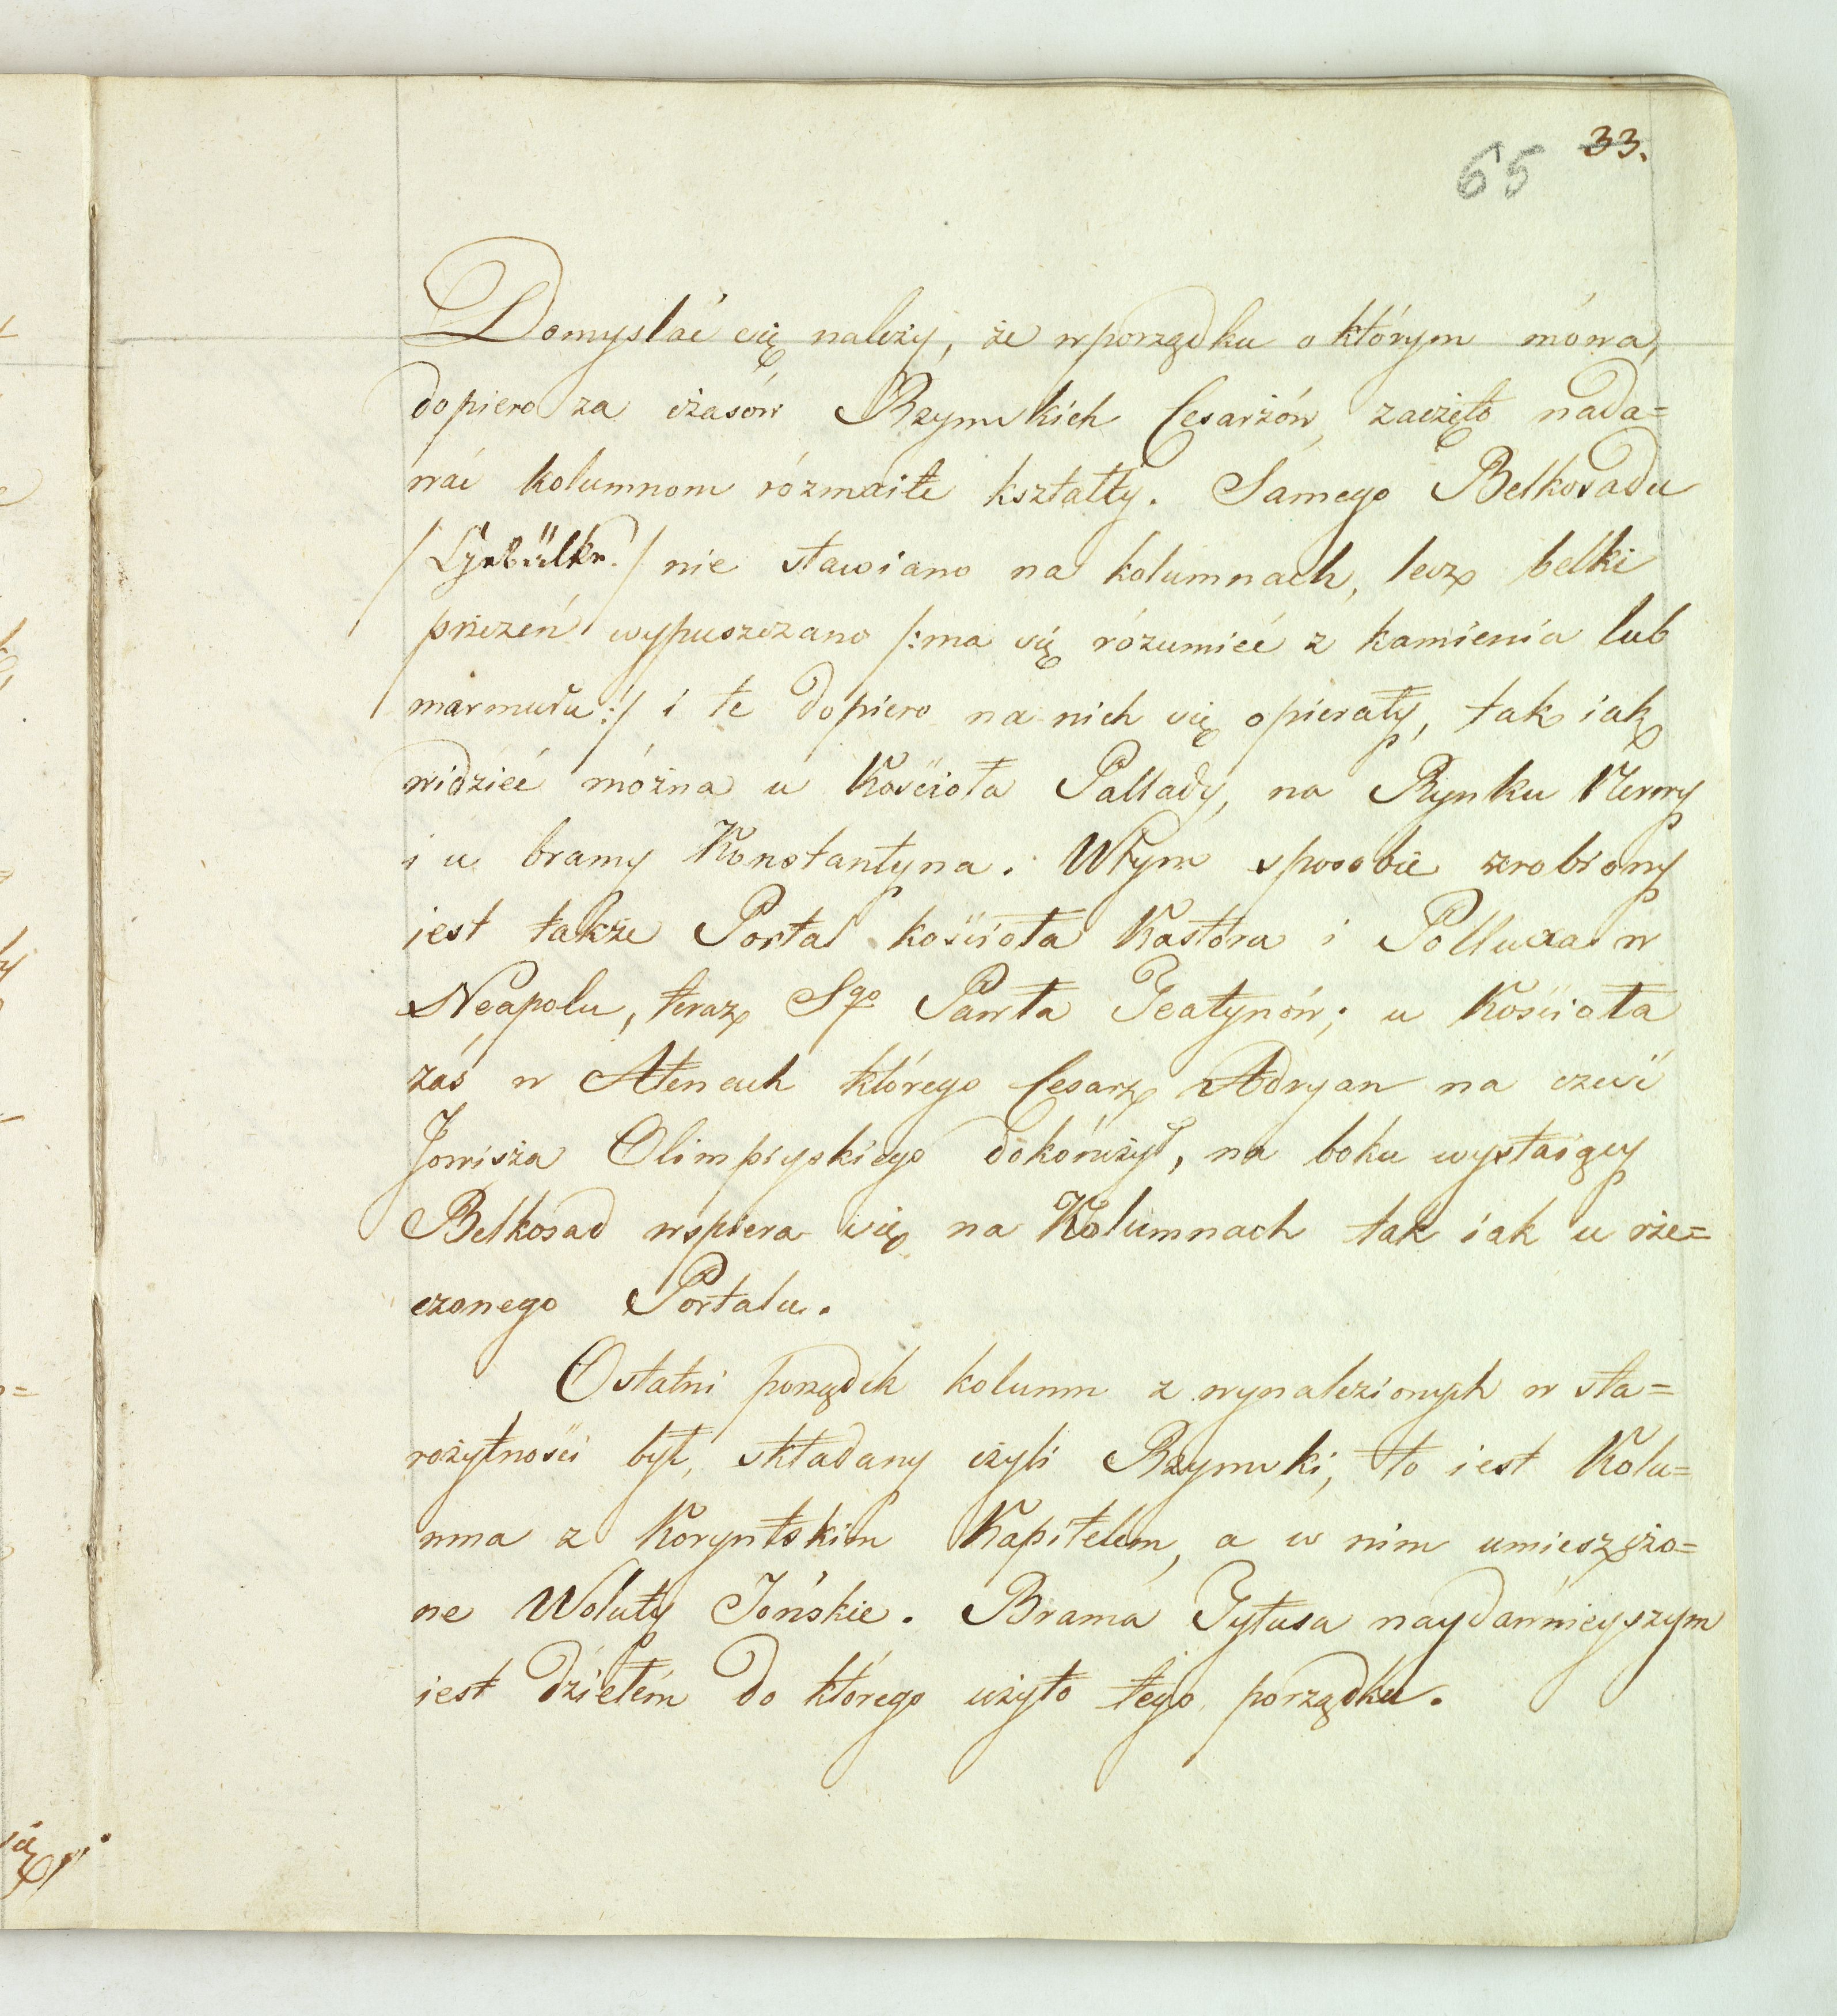 65 33.
Domyslać się należy, że w porządku o którym mówa,
dopiero za czasów Rzymskich Cesarżów, zaczęto nada=
wać kolumnom rózmaite kształty. Samego Belkosadu
/Gebälke./ nie stawiano na kolumnach, lecz belki
przezeń wypuszczano /:ma się rózumieć z kamienia lub
marmuru:/ i te dopiero na nich się opierały, tak iak
widzieć można u Kościoła Pallady, na Rynku Nerwy
i u bramy Konstantyna. W tym sposobie zrobiony
jest także Portal kościoła Kastora i Polluxa w
Neapolu, teraz Sgo Pawła Teatynów; u Kościoła
zaś w Atenach którego Cesarz Adryan na cześć
Jowisza Olimpiyskiego dokończył, na boku wystaiący
Belkosad wspiera się na Kolumnach tak iak u rże=
czonego Portalu.
Ostatni porządek kolumn z wynalezionych w sta=
rożytności był, składany czyli Rzymski, to iest Kolu=
mna z Koryntskim Kapitelem, a w nim umieszczo=
ne Woluty Jońskie. Brama Tytusa naydawnieyszym
iest dziełem do którego użyto tego porządku.